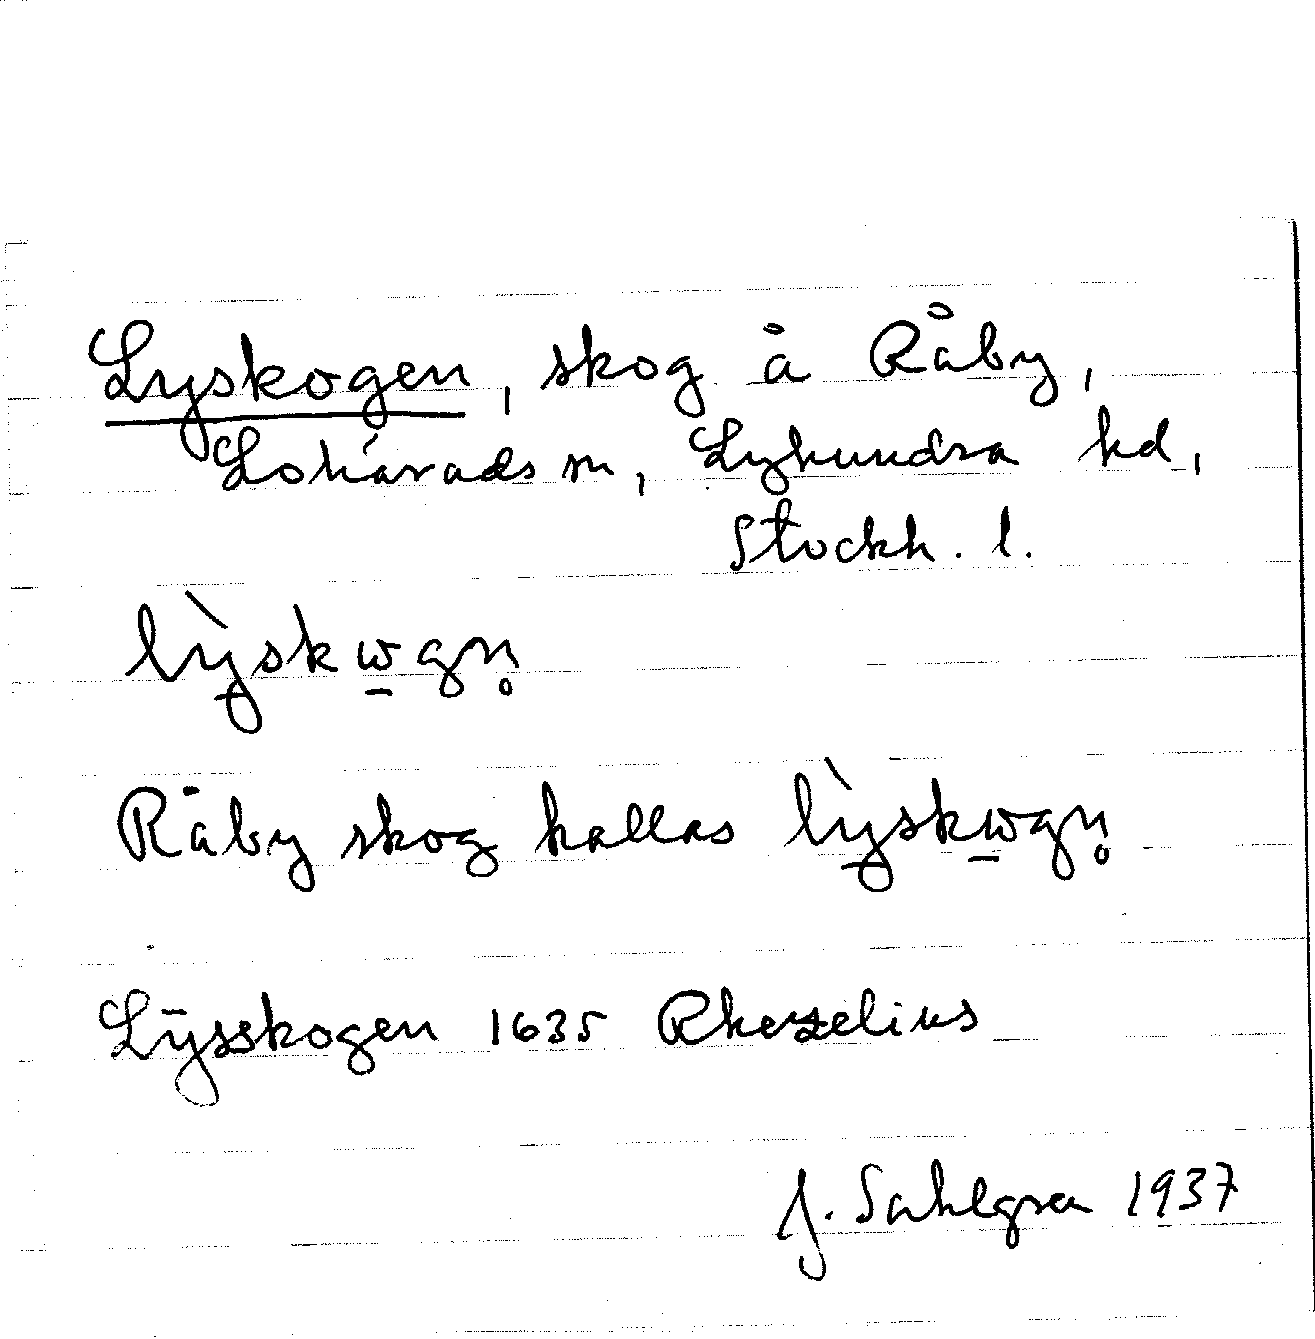 Lyskogen, skog å Råby,
Lohärads sn, Lyhundra hd,
Stockh. l.
lỳskw̠gn̥
Råby skog kallas lỳskw̠gn̥
Lÿsskogen 1635 Rhezelius
J. Sahlgren 1937